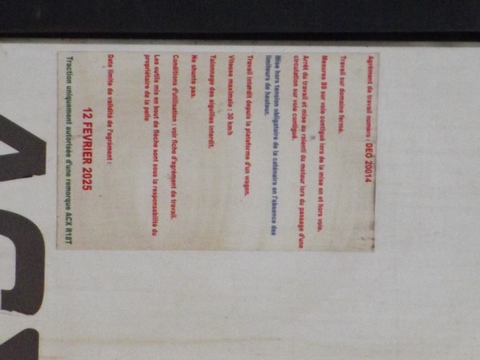 Agrément de travail numéro : DEO 20014
Travail sur domaine fermé.
Mesures S9 sur voie contiguë lors de la mise en et hors voie.
Arrêt du travail et mise au ralenti du moteur lors du passage d'une
circulation sur voie contiguë.
Mise hors tension obligatoire de la caténaire en l'absence des
limiteurs de hauteur.
Travail interdit depuis la plateforme d'un wagon.
Vitesse maximale : 30 km/h
Talonnage des aiguilles interdit.
Ne shunte pas.
Conditions d'utilisation : voir fiche d'agrément de travail.
Les outils mis en bout de flèche sont sous la responsabilité du
propriétaire de la pelle
Date limite de validité de l'agrément :
12 FEVRIER 2025
Traction uniquement autorisée d'une remorque ACX R18T